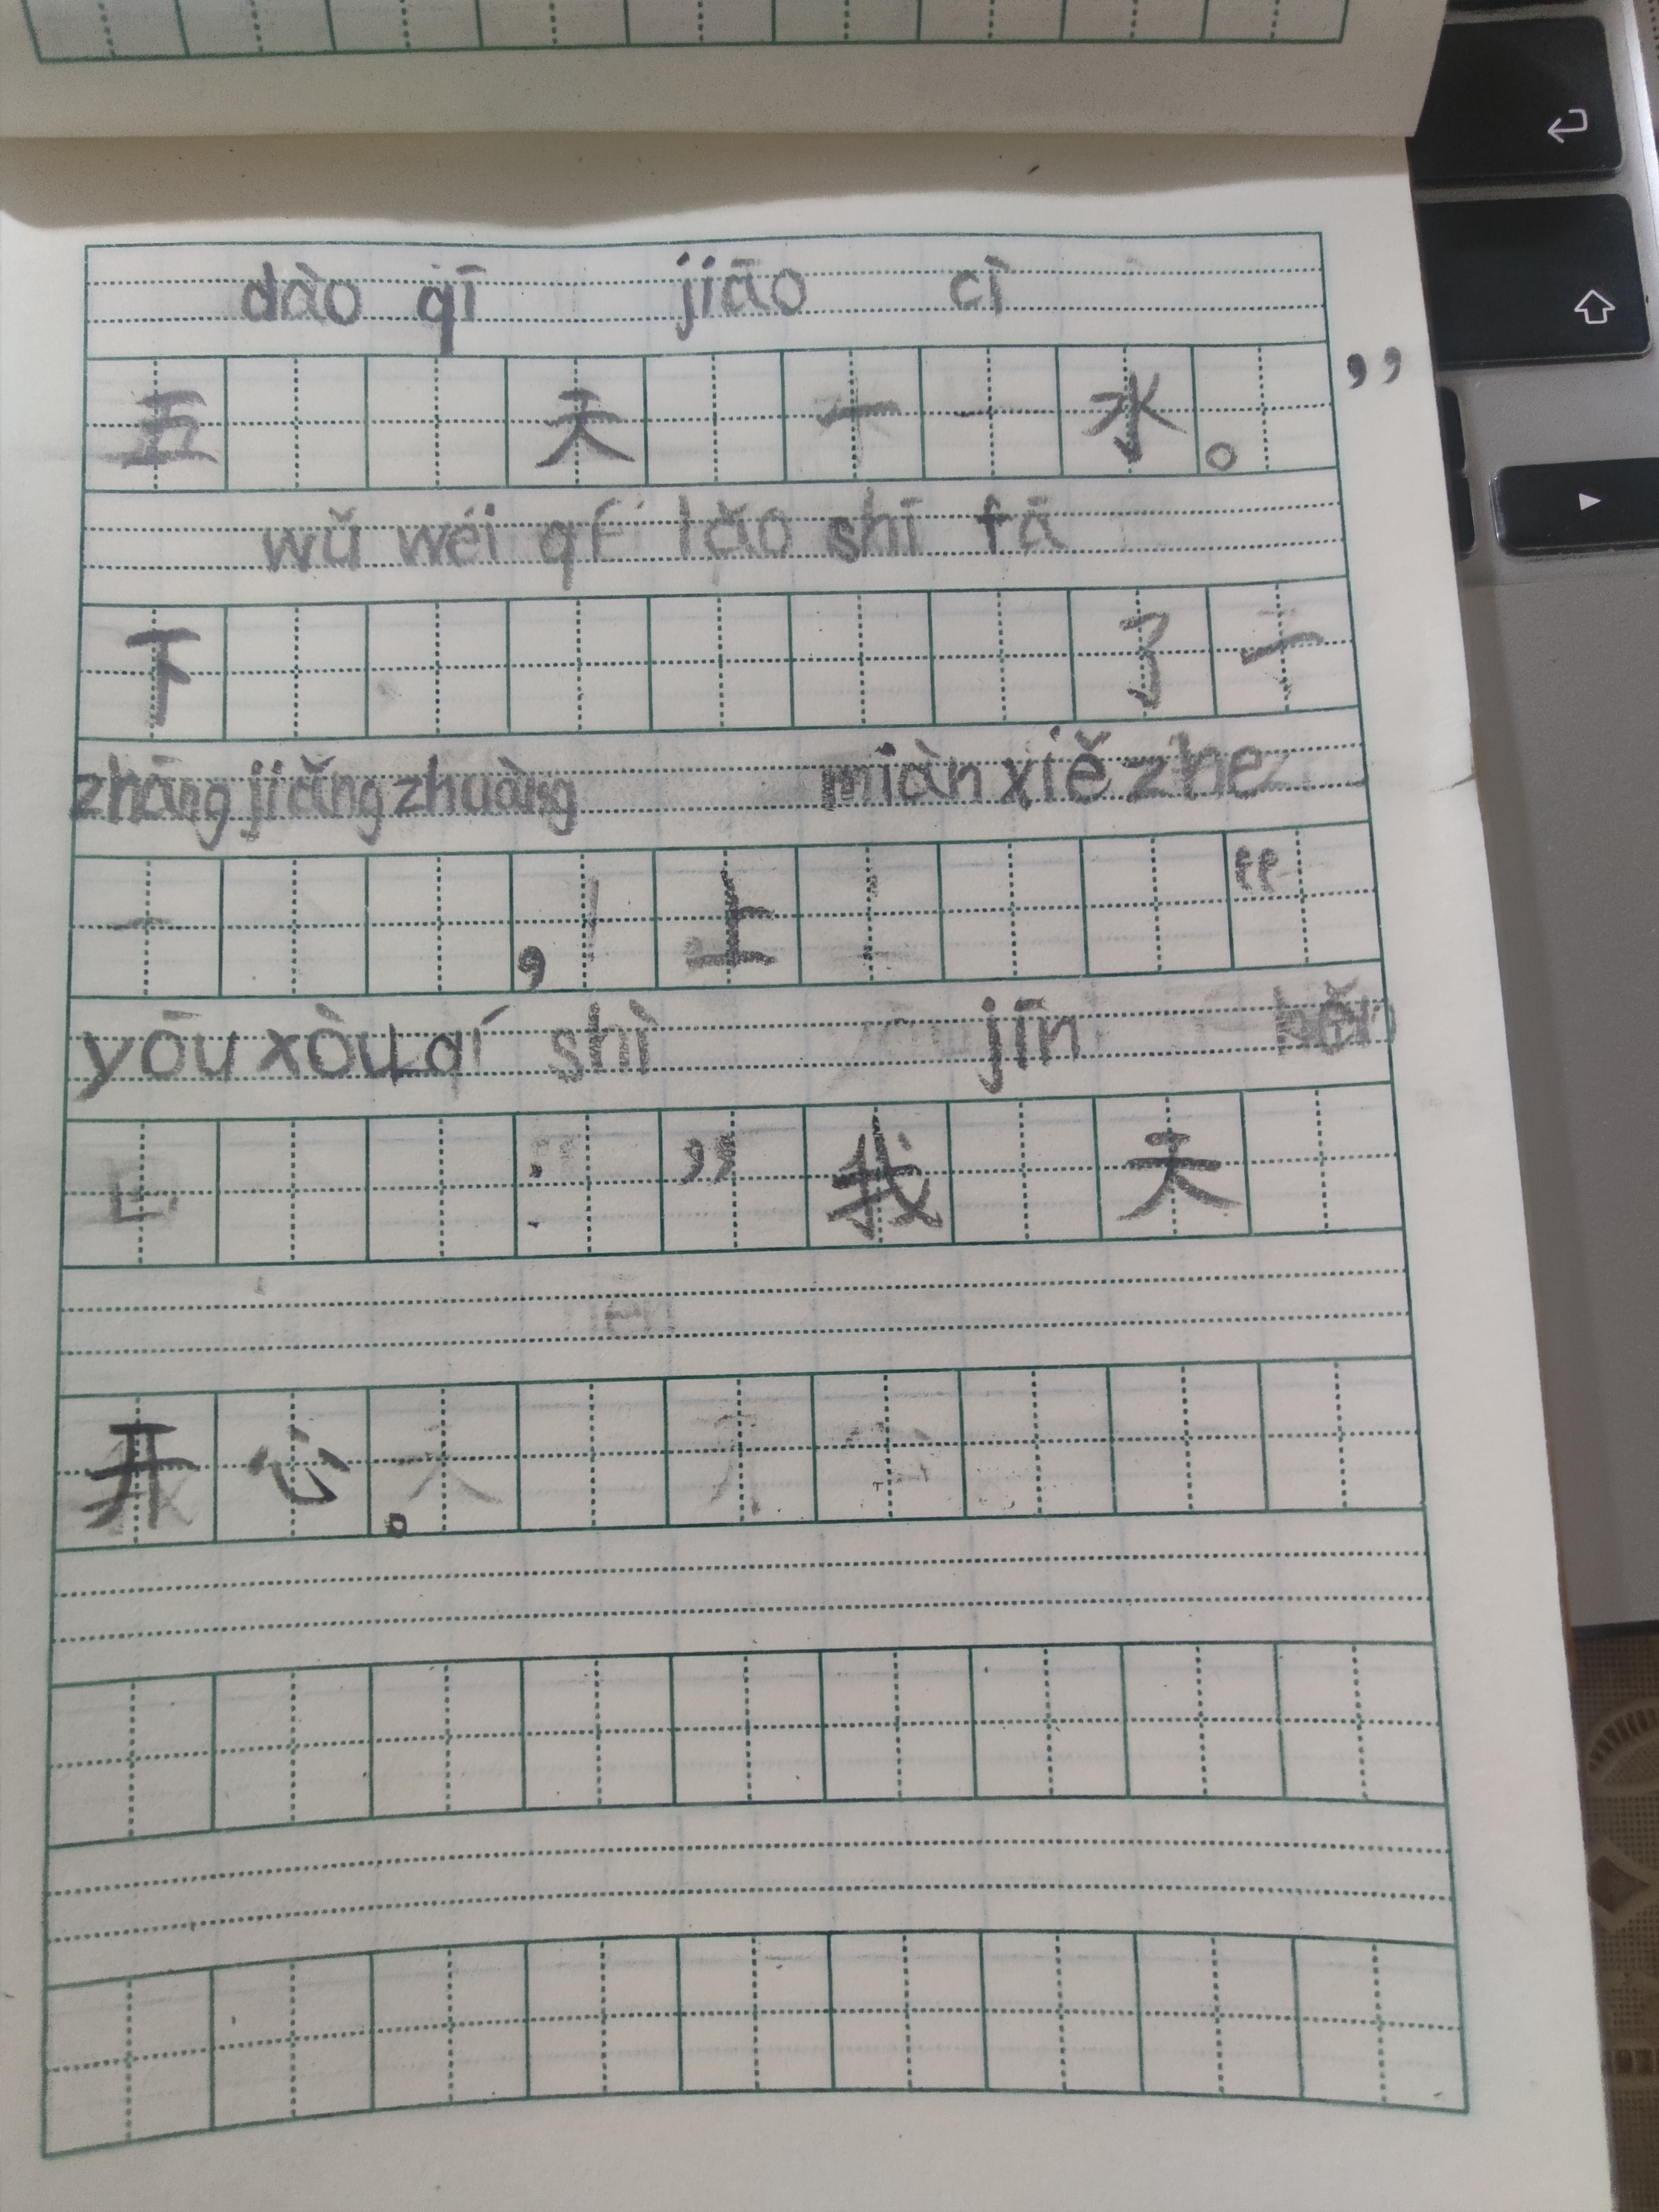 dào qī jiāo cì
五 天 一 水 。”
wǔ wéi qí lǎo shī fā
下 了 一
zhāng jiǎng zhuàng miàn xiě zhe
， 上 “
yōu xòu qí shì jīn hěn
” 我 天
开 心 。